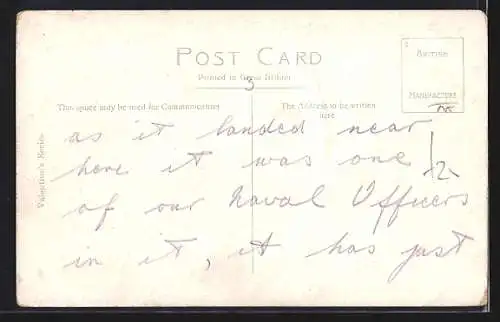 POST CARD
Printed in Great Britain
3
BRITISH
MANUFACTURE
This space may be used for Communication
The Address to be written
here
Valentine's Series
as it landed near
here it was one
of our Naval Officers
in it, it has just